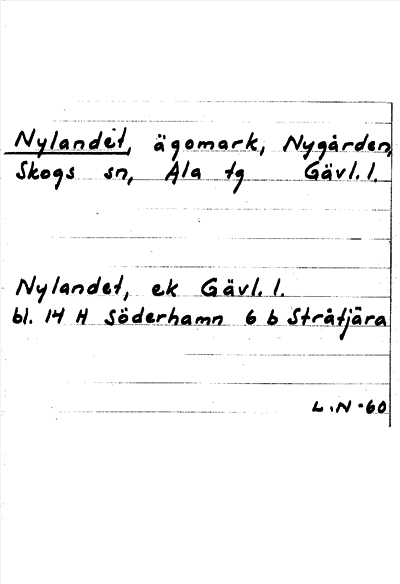 Nylandet, ägomark, Nygården,
Skogs sn, Ala tg Gävl. l.
Nylandet, ek Gävl. l.
bl. 14 H Söderhamn 6 b Stråtjära
L.N-60